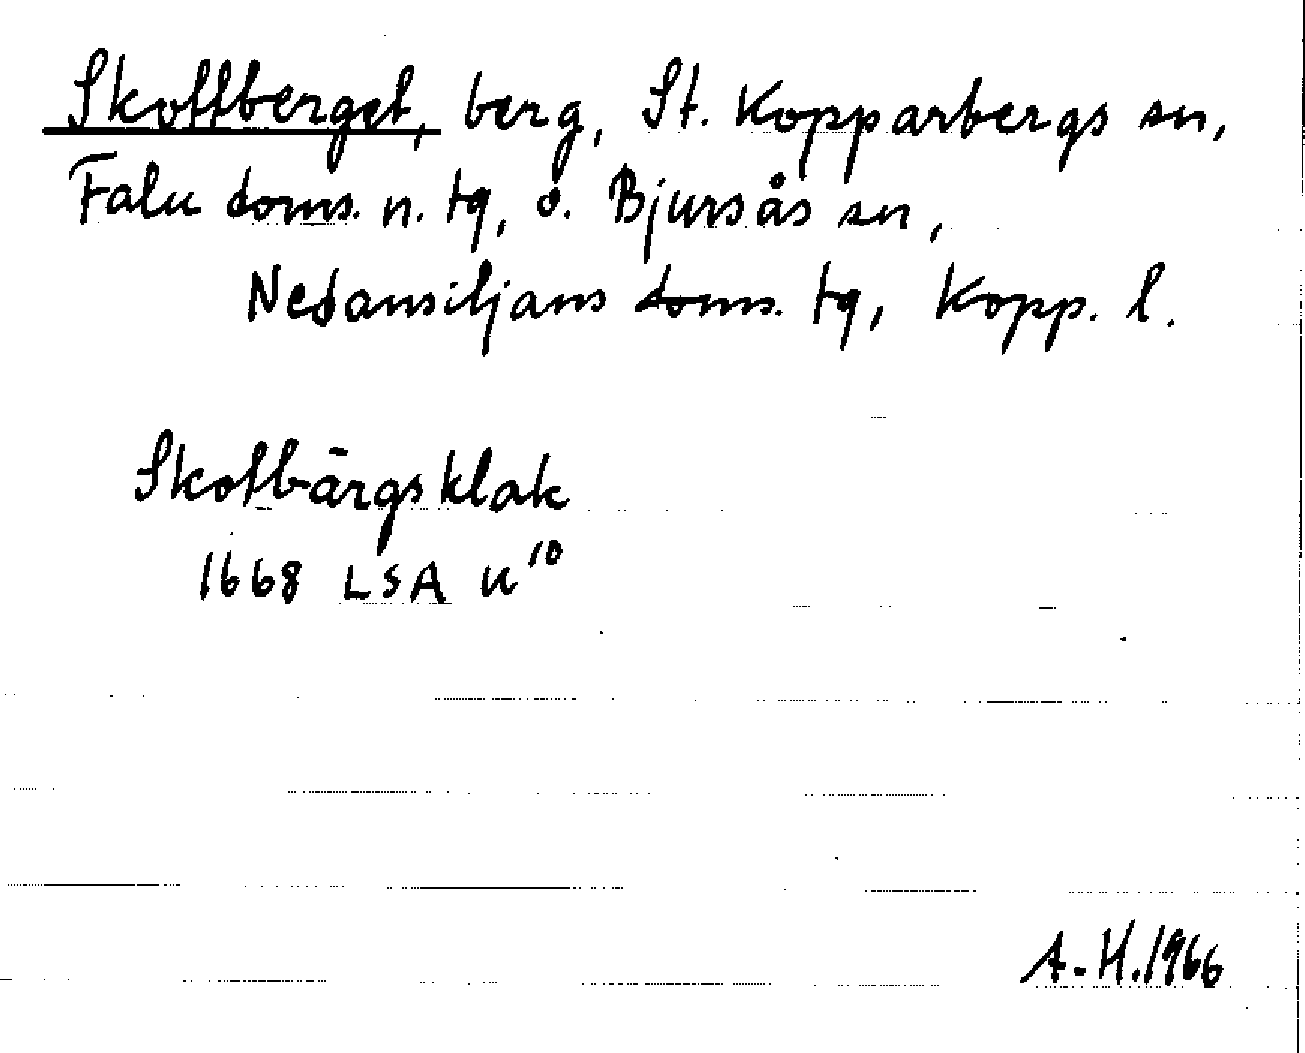 Skottberget, berg, St. Kopparbergs sn,
Falu doms. n. tg, o. Bjursås sn,
Nedansiljans doms. tg, Kopp. l.
Skotbärgsklak
1668 LSA u¹⁰
A.H.1966